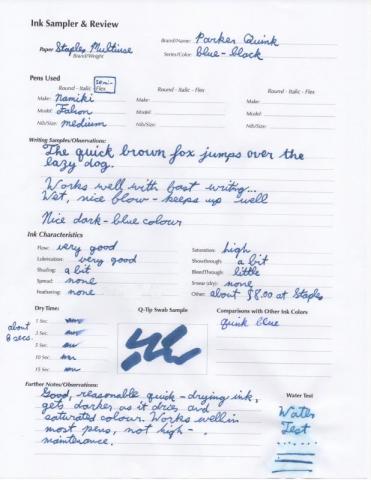 Ink Sampler & Review
Brand/Name: Parker Quink
Paper Staples Multiuse Series/Color: blue-black
Brand/Weight
Pens Used semi-
Round - Italic - Flex Round - Italic - Flex Round - Italic - Flex
Make: Namiki Make: Make:
Model: Falcon Model: Model:
Nib/Size: medium Nib/Size: Nib/Size:
Writing Samples/Observations:
The quick brown fox jumps over the
lazy dog.
Works well with fast writing...
Wet, nice flow - keeps up well
Nice dark-blue colour
Ink Characteristics
Flow: very good Saturation: high
Lubrication: very good Showthrough: a bit
Shading: a bit BleedThrough: little
Spread: none Smear (dry): none
Feathering: none Other: about $8.00 at Staples
Dry Time: Q-Tip Swab Sample Comparisons with Other Ink Colors
1 Sec. quink blue
about 3 Sec.
8 secs. 5 Sec.
10 Sec.
15 Sec.
Further Notes/Observations:
Good, reasonable quick-drying ink, Water Test
gets darker as it dries and Water
saturated colour. Works well in Test
most pens, not high-
maintenance.